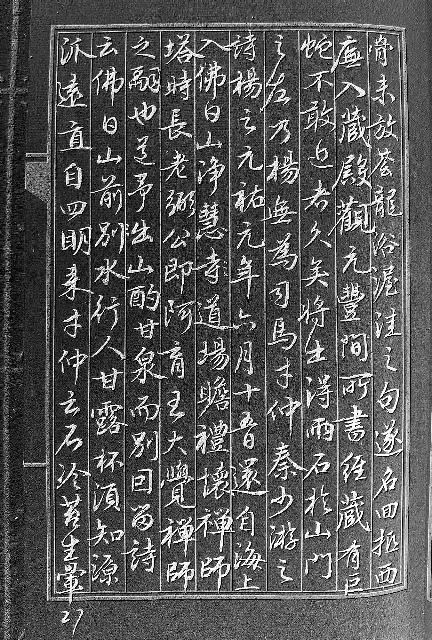 骨未放荅龍浴渥洼之句遂名曰
廡入藏殿觀元豐間所書經藏有巨
蛇不敢近者久矣將出得兩石於山門
之左乃楊無為司馬才仲秦少游之
詩楊之元祐元年六月十五日還自海上
入佛日山淨慧寺道場瞻禮壞禪師
塔時長老弼公即阿育王大覺禪師
之嗣也送予出山酌甘泉而別因留詩
云佛日山前別水行人甘露杯須知源
派遠直自四明來才仲云石冷苔生暈
27